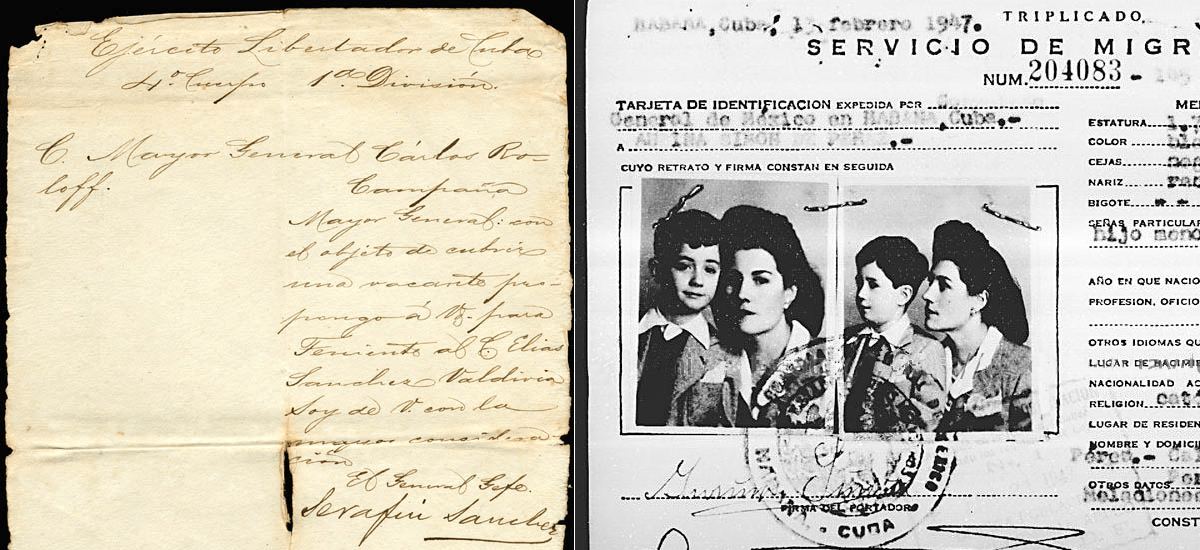 Ejército Libertador de Cuba
4º Cuerpo 1ª División.
C. Mayor General Cárlos Ro-
loff.
Campaña
Mayor General: con
el objeto de cubrir
una vacante pro-
pongo á V. para
Teniente al C. Elias
Sanchez Valdivia
Soy de V. con la
mayor considera
ción
El General Gefe.
Serafin Sanchez
HABANA, Cuba, 13 febrero 1947.
TRIPLICADO.
SERVICIO DE MIGR
NUM. 204083
TARJETA DE IDENTIFICACION EXPEDIDA POR
General de México en HABANA, Cuba.-
A SIMON DE PEREZ.-
CUYO RETRATO Y FIRMA CONSTAN EN SEGUIDA
FIRMA DEL PORTADOR
CUBA
ME
ESTATURA 1.
COLOR
CEJAS
NARIZ
BIGOTE
SEÑAS PARTICULAR
hijo meno
AÑO EN QUE NACIO
PROFESION, OFICIO
OTROS IDIOMAS QU
LUGAR DE NACIMIE
NACIONALIDAD AC
RELIGIÓN cató
LUGAR DE RESIDEN
NOMBRE Y DOMICI
Pérez.-
OTROS DATOS
Relaciones
CONST